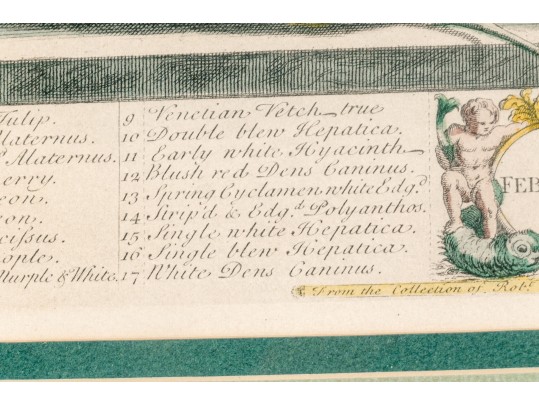 Tulip. 9 Venetian Vetch true
Alaternus. 10 Double blew Hepatica.
Alaternus. 11 Early white Hyacinth
erry. 12 Blush red Dens Caninus.
eon. 13 Spring Cyclamen white Edg.d
eon. 14 Strip'd & Edg.d Polyanthos.
cissus. 15 Single white Hepatica.
ople. 16 Single blew Hepatica.
Purple & White. 17 White Dens Caninus.
FEB
From the Collection of Rob.t